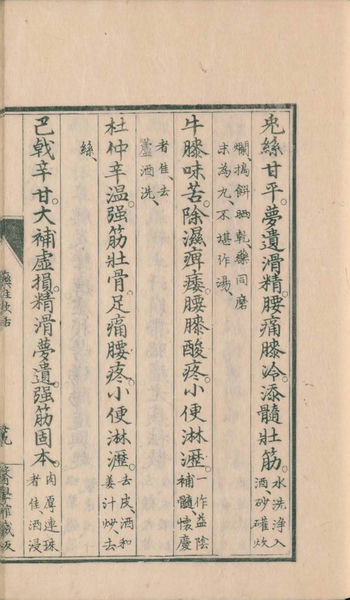 兎絲甘平。夢遺滑精。腰痛膝冷。添髓壯筋。水洗淨入酒砂罐炊
爛、搗餅晒乾、藥同磨末為丸、不堪作湯、
牛膝味苦。除濕痺痿。腰膝酸疼。小便淋瀝。一作益陰補髓、懷慶
者佳、去蘆酒洗、
杜仲辛温。强筋壯骨。足痛腰疼。小便淋瀝。去皮、酒和姜汁炒去
絲、
巴戟辛甘。大補虚損。精滑夢遺。强筋固本。肉厚連珠者佳酒浸